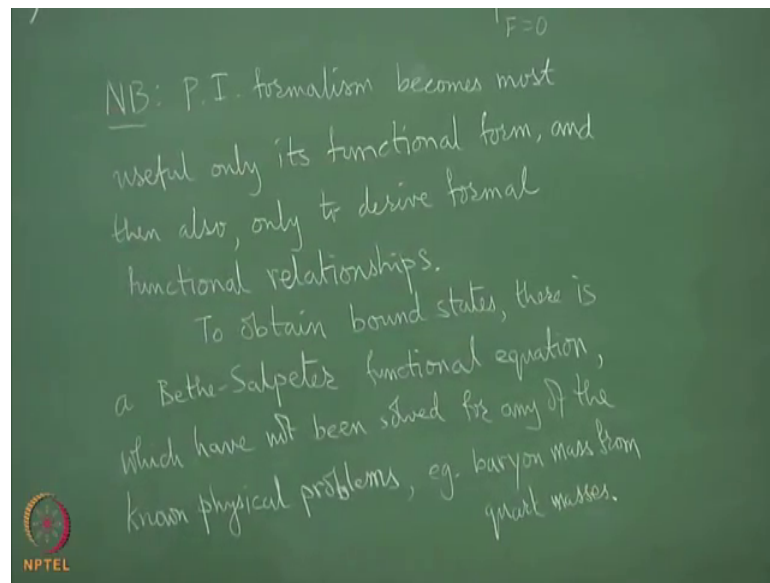 F=0
NB: P.I. formalism becomes most
useful only its functional form, and
then also, only to derive formal
functional relationships.
To obtain bound states, there is
a Bethe-Salpeter functional equation,
which have not been solved for any of the
known physical problems, eg. baryon mass from
quark masses.
NPTEL